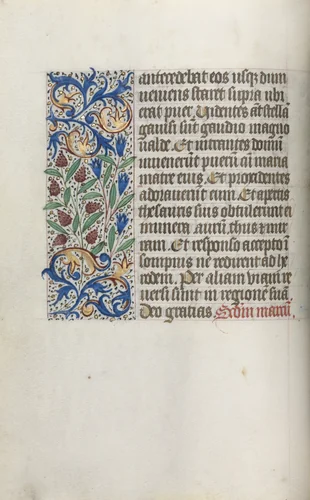 antecedebat eos usq; dum
veniens staret supra ubi
erat puer. Videntes aūt stellā
gauisi sūt gaudio magno
ualde. Et intrantes domū
inuenerūt puerū cū maria
matre eius. Et procidentes
adorauerūt eum. Et apertis
thesauris suis obtulerunt ei
munera. aurū. thus ⁊ mir
ram. Et responso accepto ī
sompnis ne redirent ad he
rodem. Per aliam viam re
uersi sunt in regionē suā.
Deo gratias. Scdm marcū.